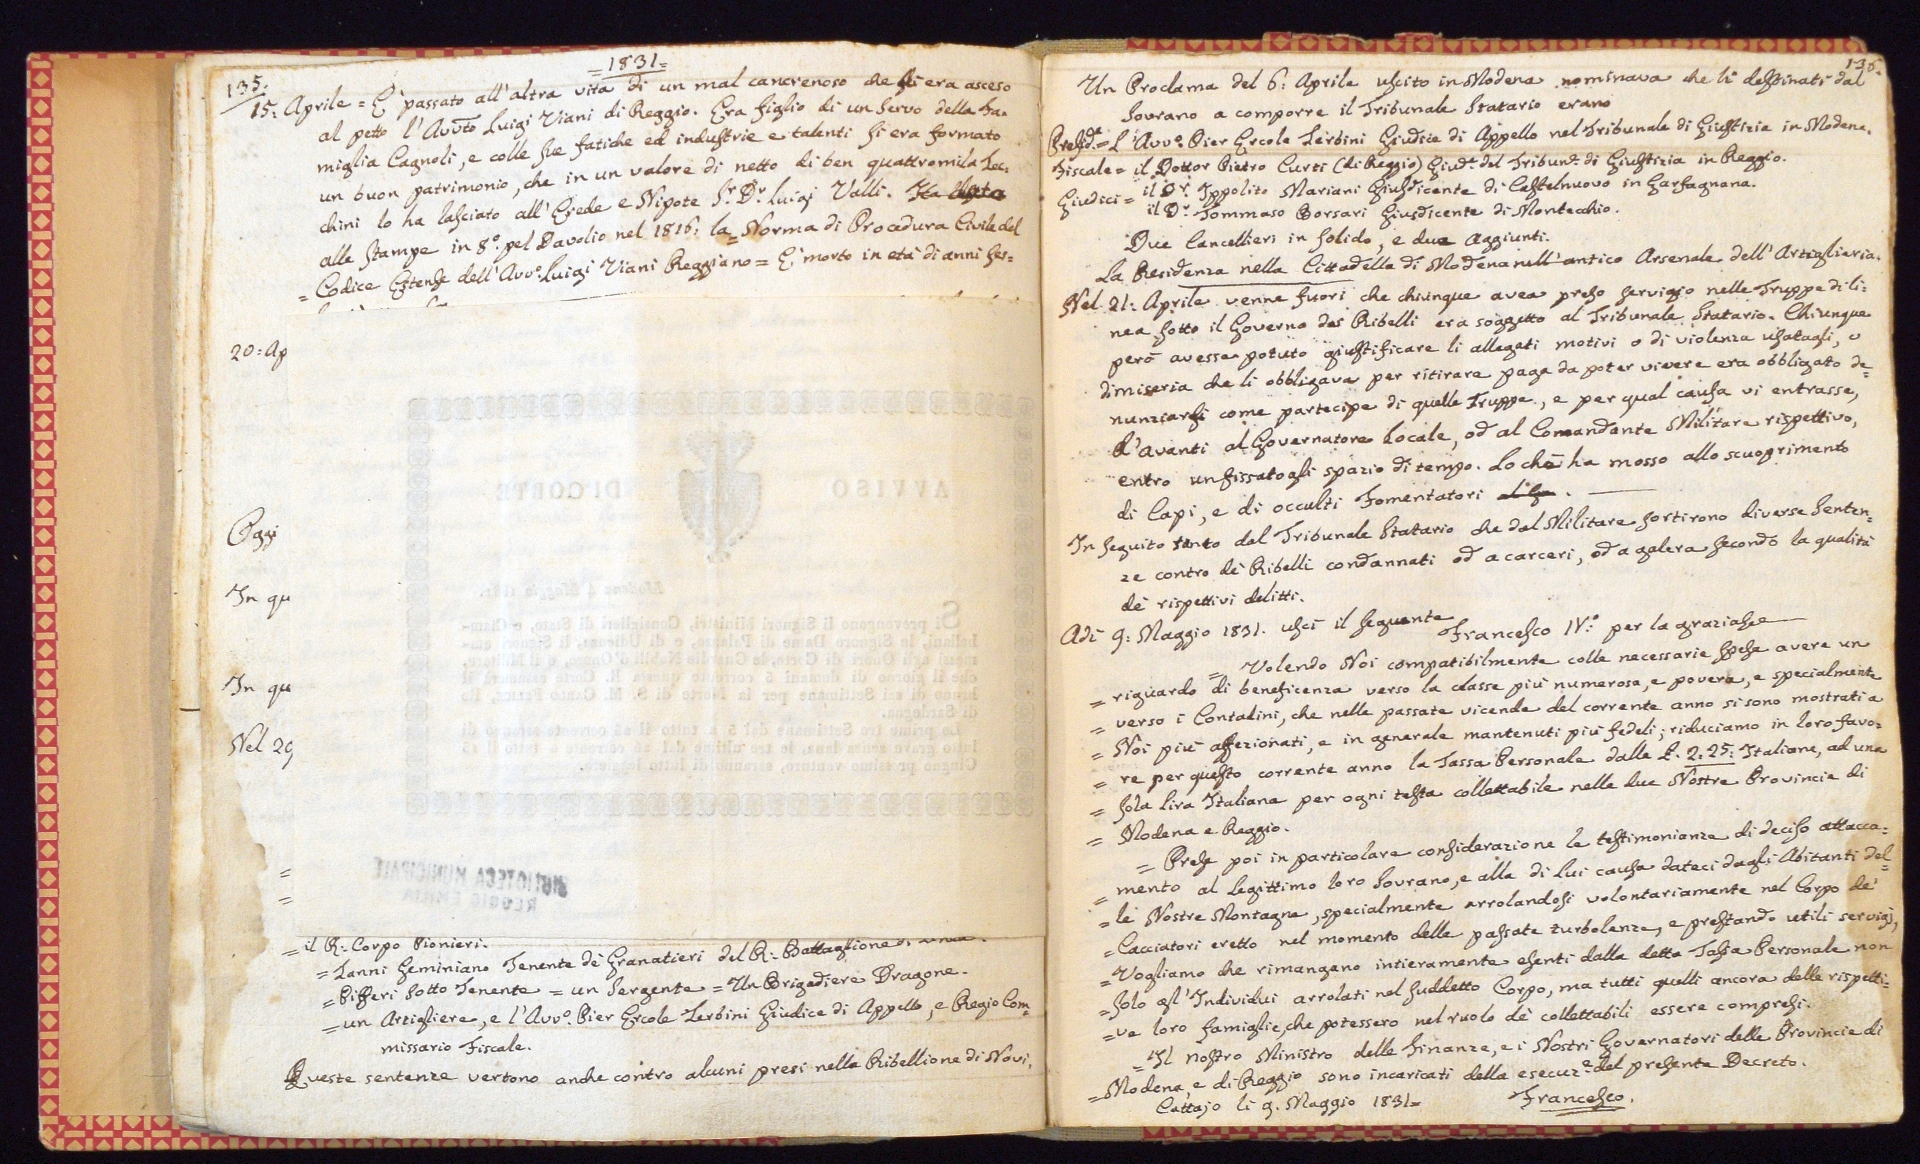 135.
=1831=
15: Aprile = E' passato all'altra vita di un mal cancrenoso che si era asceso
al petto l'Avvto Luigi Viani di Reggio. Era figlio di un Servo della Fa-
miglia Cagnoli, e colle sue fatiche ed industrie e talenti si era formato
un buon patrimonio, che in un valore di netto di ben quattromila Zec-
chini lo ha lasciato all'Erede e Nipote Sr. Dr. Luigi Valli. Ha
alle stampe in 8o. pel Davolio nel 1816: la = Norma di Procedura Civile del
= Codice Estense dell'Avvo. Luigi Viani Reggiano = E' morto in età di anni ses=
20: Ap
Oggi
In qu
In qu
Nel 29
AVVISO DI CORTE
Modena 4 Maggio 1831.
Si prevengono li Signori Ministri, Consiglieri di Stato, e Ciam-
bellani, le Signore Dame di Palazzo, e di Udienza, li Signori am-
messi agli Onori di Corte, le Guardie Nobili d'Onore, e il Militare,
che il giorno di domani 5 corrente questa R. Corte assumerà il
bruno di sei Settimane per la Morte di S. M. CARLO FELICE, Re
di Sardegna.
Le prime tre Settimane dal 5 a tutto il 25 corrente saranno di
lutto grave senza lana, le tre ultime dal 26 corrente a tutto il 15
Giugno prossimo venturo, saranno di lutto leggiero.
BIBLIOTECA MUNICIPALE
REGGIO EMILIA
=
=
= il R: Corpo Pionieri.
= Zanni Geminiano Tenente de' Granatieri del R: Battaglione di Linea.
= Pifferi Sotto Tenente = un Sergente = Un Brigadiere Dragone.
= un Artigliere, e l'Avvo. Pier Ercole Zerbini Giudice di Appello, e Regio Com=
missario Fiscale.
Queste sentenze vertono anche contro alcuni presi nella Ribellione di Novi,
136.
Un Proclama del 6: Aprile uscito in Modena nominava che li destinati dal
Sovrano a comporre il Tribunale Statario erano
Presid.e = L'Avvo. Pier Ercole Zerbini Giudice di Appello nel Tribunale di Giustizia in Modena.
Fiscale = il Dottor Pietro Curti (di Reggio) Giude. del Tribune. di Giustizia in Reggio.
Giudici = il Dr. Ippolito Mariani Giusdicente di Castelnuovo in Garfagnana.
il Dr. Tommaso Borsari Giusdicente di Montecchio.
Due Cancellieri in solido, e due Aggiunti.
La Residenza nella Cittadella di Modena nell'antico Arsenale dell'Artiglieria.
Nel 21: Aprile venne fuori che chiunque avea preso servigio nelle Truppe di li=
nea sotto il Governo dei Ribelli era soggetto al Tribunale Statario. Chiunque
però avesse potuto giustificare li allegati motivi o di violenza usatagli, o
di miseria che li obbligava per ritirare paga da poter vivere era obbligato de=
nunziarsi come partecipe di quelle Truppe, e per qual causa vi entrasse,
d'avanti al Governatore Locale, od al Comandante Militare rispettivo,
entro un fissatogli spazio di tempo. Lo chè ha mosso allo scuoprimento
di Capi, e di occulti Fomentatori.
In seguito tanto dal Tribunale Statario che dal Militare sortirono diverse Senten=
ze contro de' Ribelli condannati od a carceri, od a galera secondo la qualità
de' rispettivi delitti.
Adì 9: Maggio 1831. uscì il seguente
Francesco IV.o per la grazia &c
= Volendo Noi compatibilmente colle necessarie spese avere un
= riguardo di beneficenza verso la classe più numerosa, e povera, e specialmente
= verso i Contadini, che nelle passate vicende del corrente anno si sono mostrati a
= Noi più affezionati, e in generale mantenuti più fedeli; riduciamo in loro favo=
= re per questo corrente anno la Tassa Personale dalle £. 2:25: Italiane, ad una
= sola Lira Italiana per ogni testa collettabile nelle due Nostre Provincie di
= Modena e Reggio.
= Prese poi in particolare considerazione le testimonianze di deciso attacca=
= mento al legittimo loro Sovrano, e alla di Lui causa dateci dagli Abitanti del=
= le Nostre Montagne, specialmente arrolandosi volontariamente nel Corpo de'
= Cacciatori eretto nel momento delle passate turbolenze, e prestando utili servigj,
= Vogliamo che rimangano intieramente esenti dalla detta Tassa Personale non
= solo gl'Individui arrolati nel suddetto Corpo, ma tutti quelli ancora delle rispetti=
= ve loro famiglie, che potessero nel ruolo de' collettabili essere compresi.
= Il nostro Ministro delle Finanze, e i Nostri Governatori delle Provincie di
= Modena, e di Reggio sono incaricati della esecuz.e del presente Decreto.
Cattajo li 9. Maggio 1831=
Francesco.